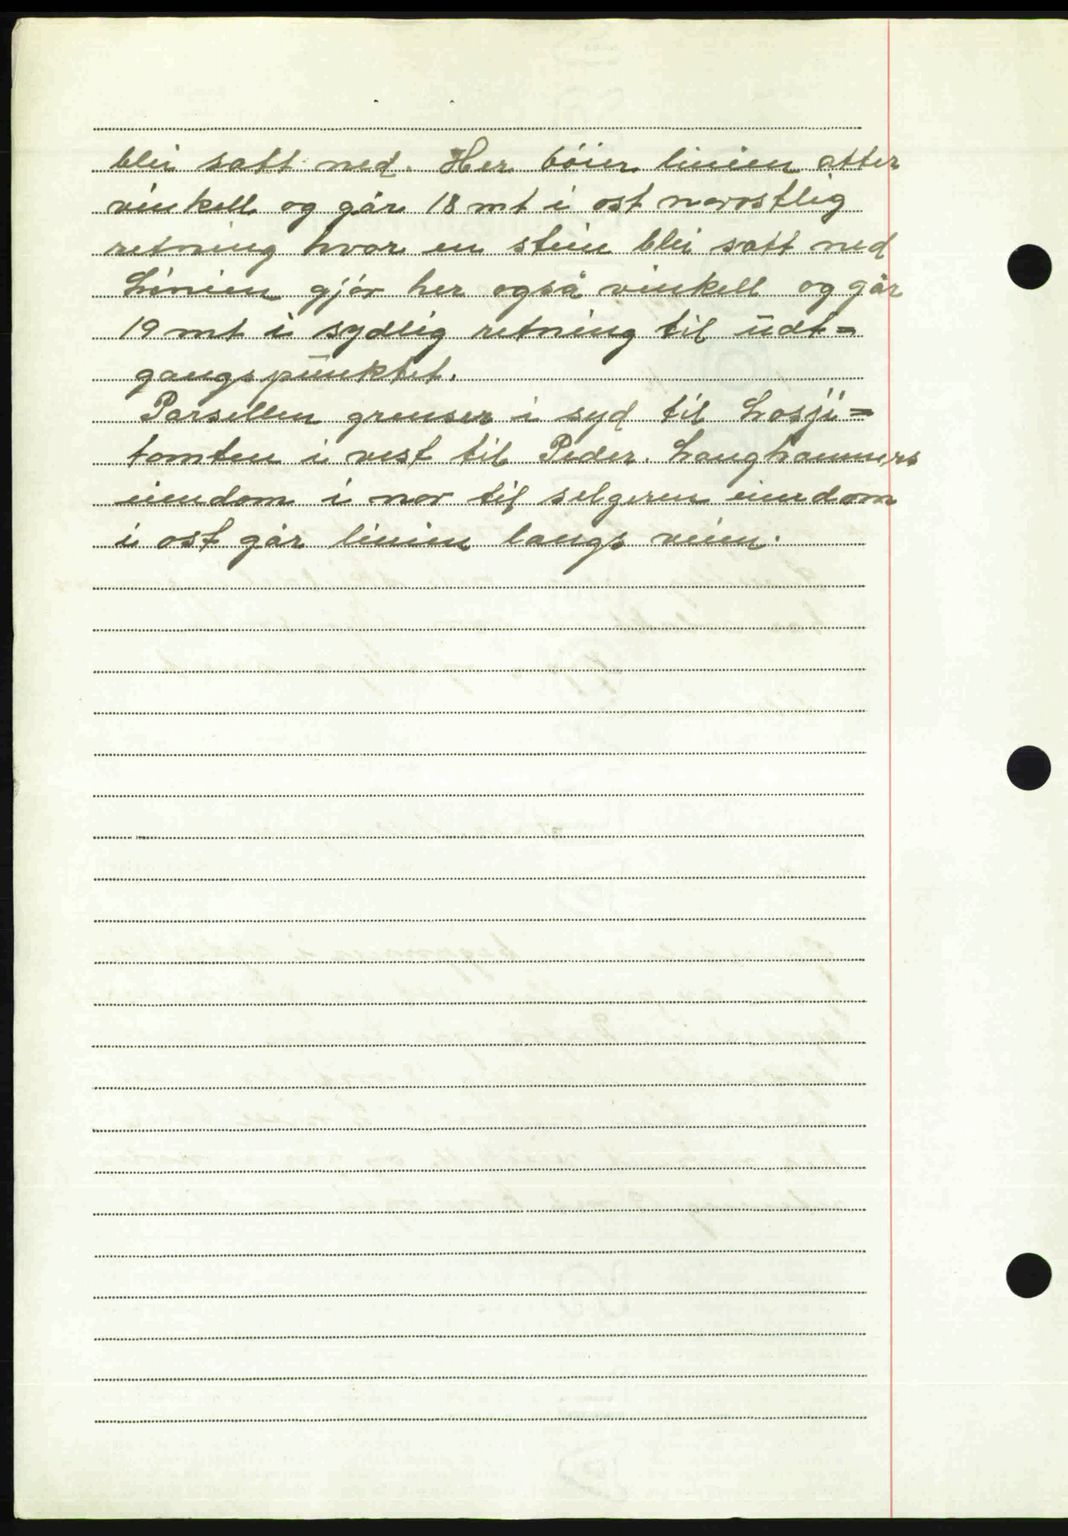 blei satt ned. Her bóier linien atter
vinkell og går 18 mt i ost norostlig
retning hvor en stein blei satt ned
Linien gjór her også vinkell og går
19 mt i sydlig retning til ūdt=
gangspūnktet.
Parsellen grenser i syd til Losji=
tomten i vest til Peder. Langhammers
eiendom i nor til selgeren eiendom
i ost går linien langs veien.